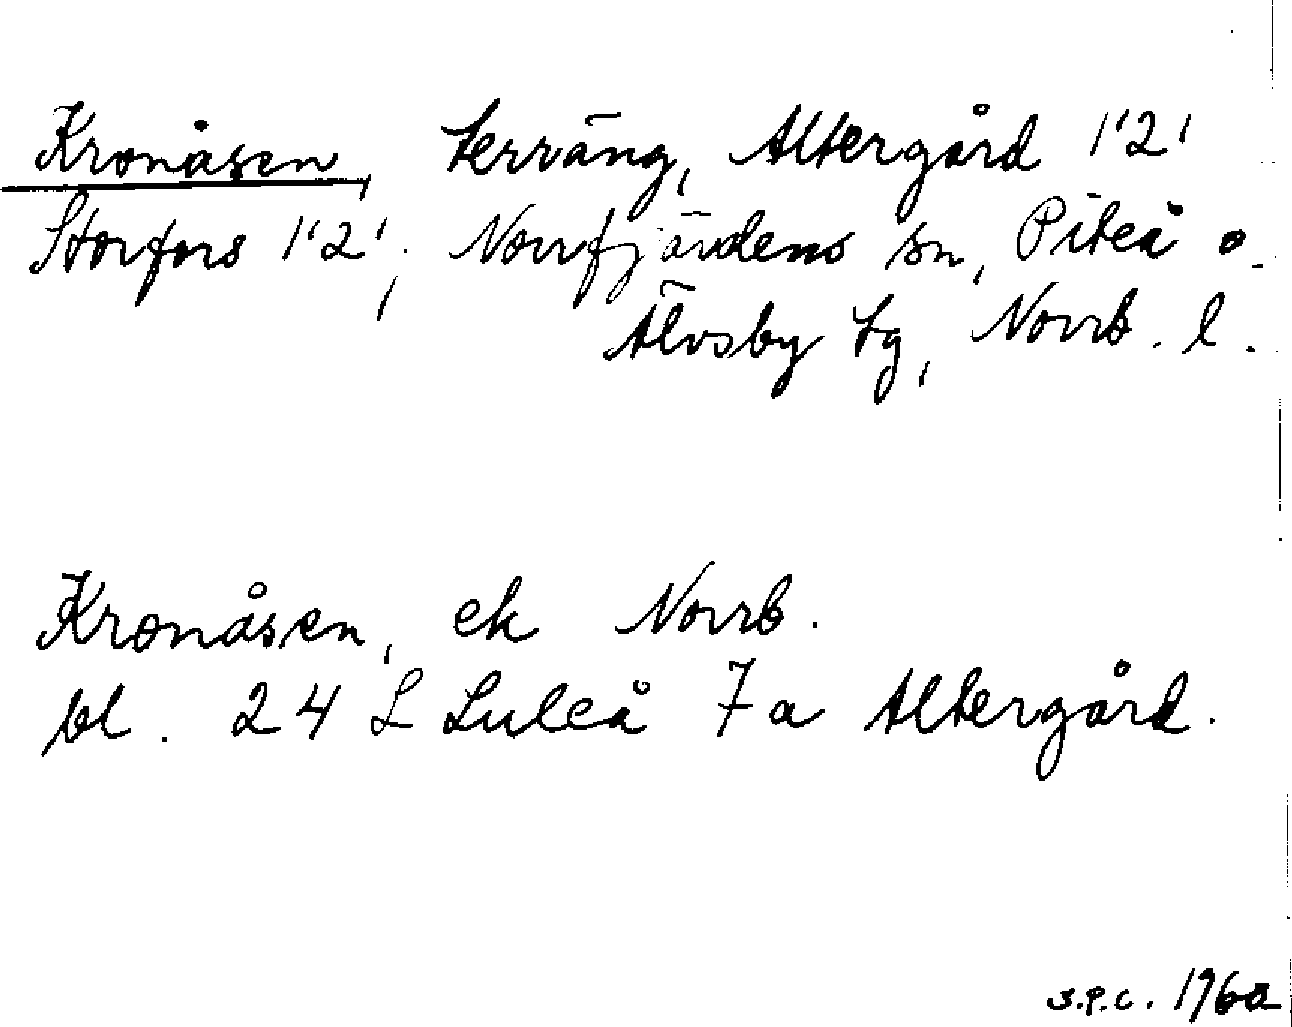 Kronåsen, terräng, Altergård 1'2'
Storfors 1'2'; Norrfjärdens sn, Piteå o.
Älvsby tg, Norrb. l.
Kronåsen, ek Norrb.
bl. 24 L Luleå 7a Altergård.
S.P.C.